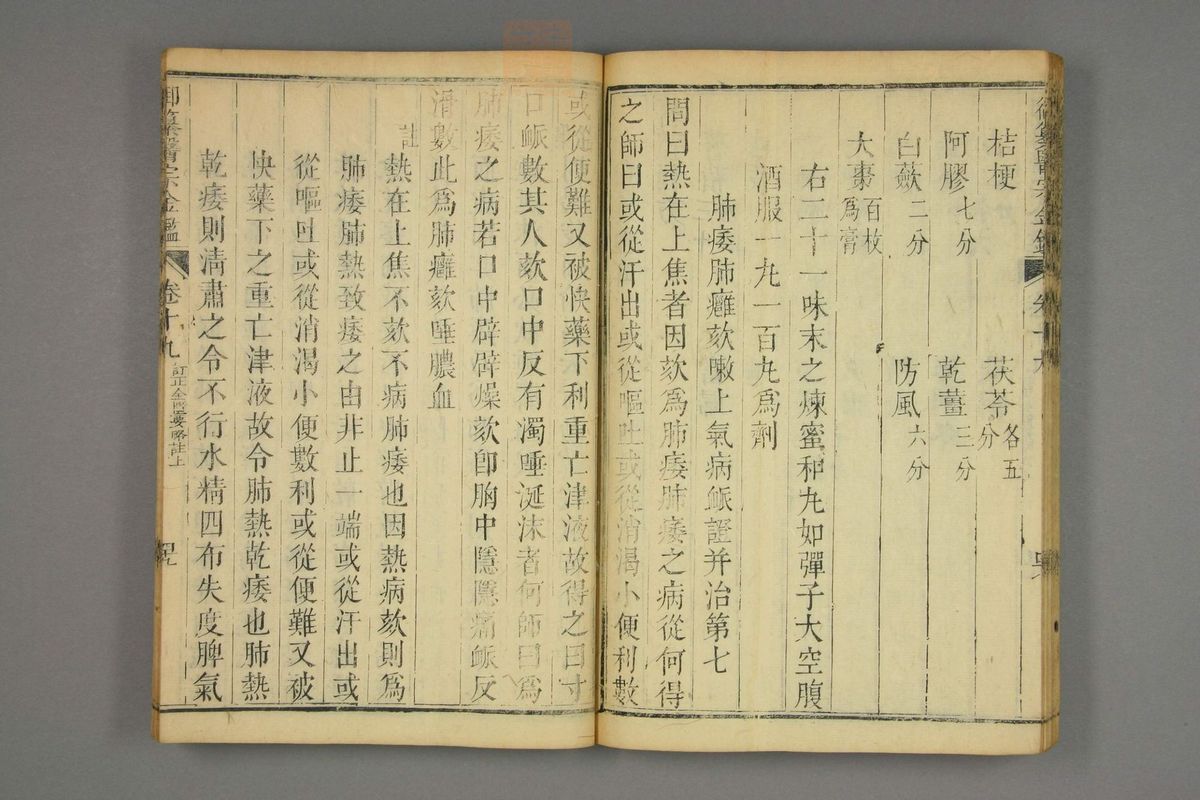 桔梗 茯苓各五分
阿膠七分 乾薑三分
白蘞二分 防風六分
大棗百枚為膏
右二十一味末之煉蜜和丸如彈子大空腹
酒服一丸一百丸為劑
肺痿肺癰欬嗽上氣病脈證并治第七
問曰熱在上焦者因欬為肺痿肺痿之病從何得
之師曰或從汗出或從嘔吐或從消渴小便利數
或從便難又被快藥下利重亡津液故得之曰寸
口脈數其人欬口中反有濁唾涎沫者何師曰為
肺痿之病若口中辟辟燥欬即胸中隱隱痛脈反
滑數此為肺癰欬唾膿血
註
熱在上焦不欬不病肺痿也因熱病欬則為
肺痿肺熱致痿之由非止一端或從汗出或
從嘔吐或從消渴小便數利或從便難又被
快藥下之重亡津液故令肺熱乾痿也肺熱
乾痿則清肅之令不行水精四布失度脾氣
御纂醫宗金鑑
卷十九
訂正金匱要略註上